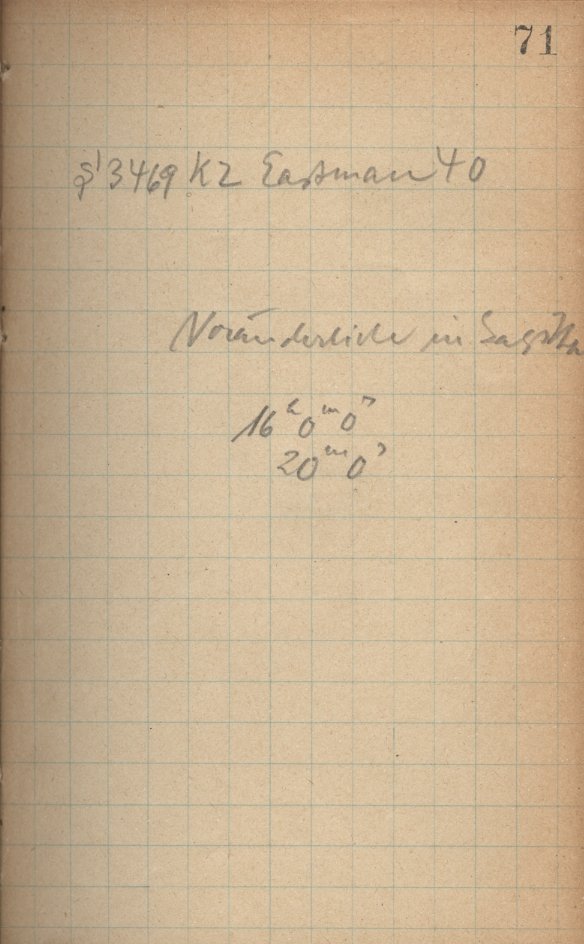 71
3469 K2 Eastman 40
Veränderliche in Sagitta
16ʰ0ᵐ0ˢ
20ᵐ0ˢ